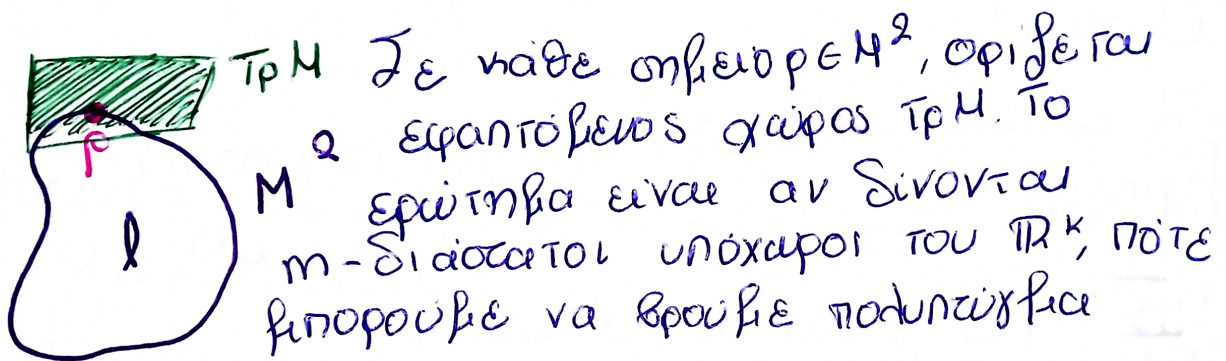 TpM Σε κάθε σημείο p ∈ M², ορίζεται
εφαπτόμενος χώρος TpM. Το
p
M² ερώτημα είναι αν δίνονται
m-διάστατοι υπόχωροι του ℝᵏ, πότε
μπορούμε να βρούμε πολύπτυγμα